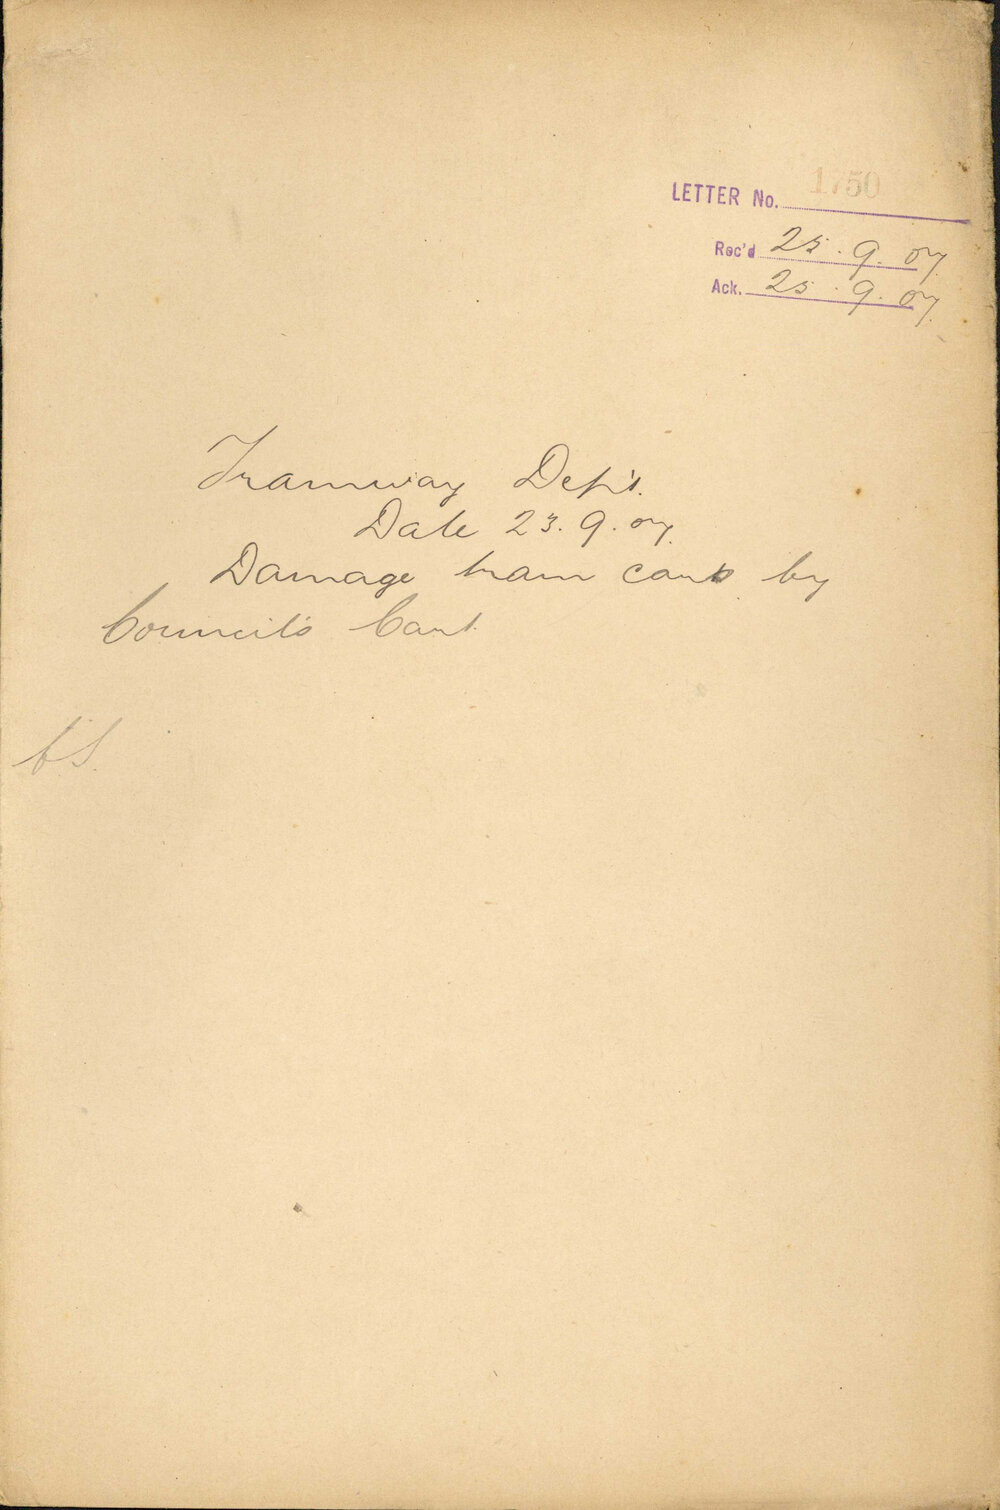 LETTER No. 1750
Rec'd 25.9.07
Ack. 25.9.07
Tramway Dept.
Date 23.9.07.
Damage tram cars by
Council's Cart